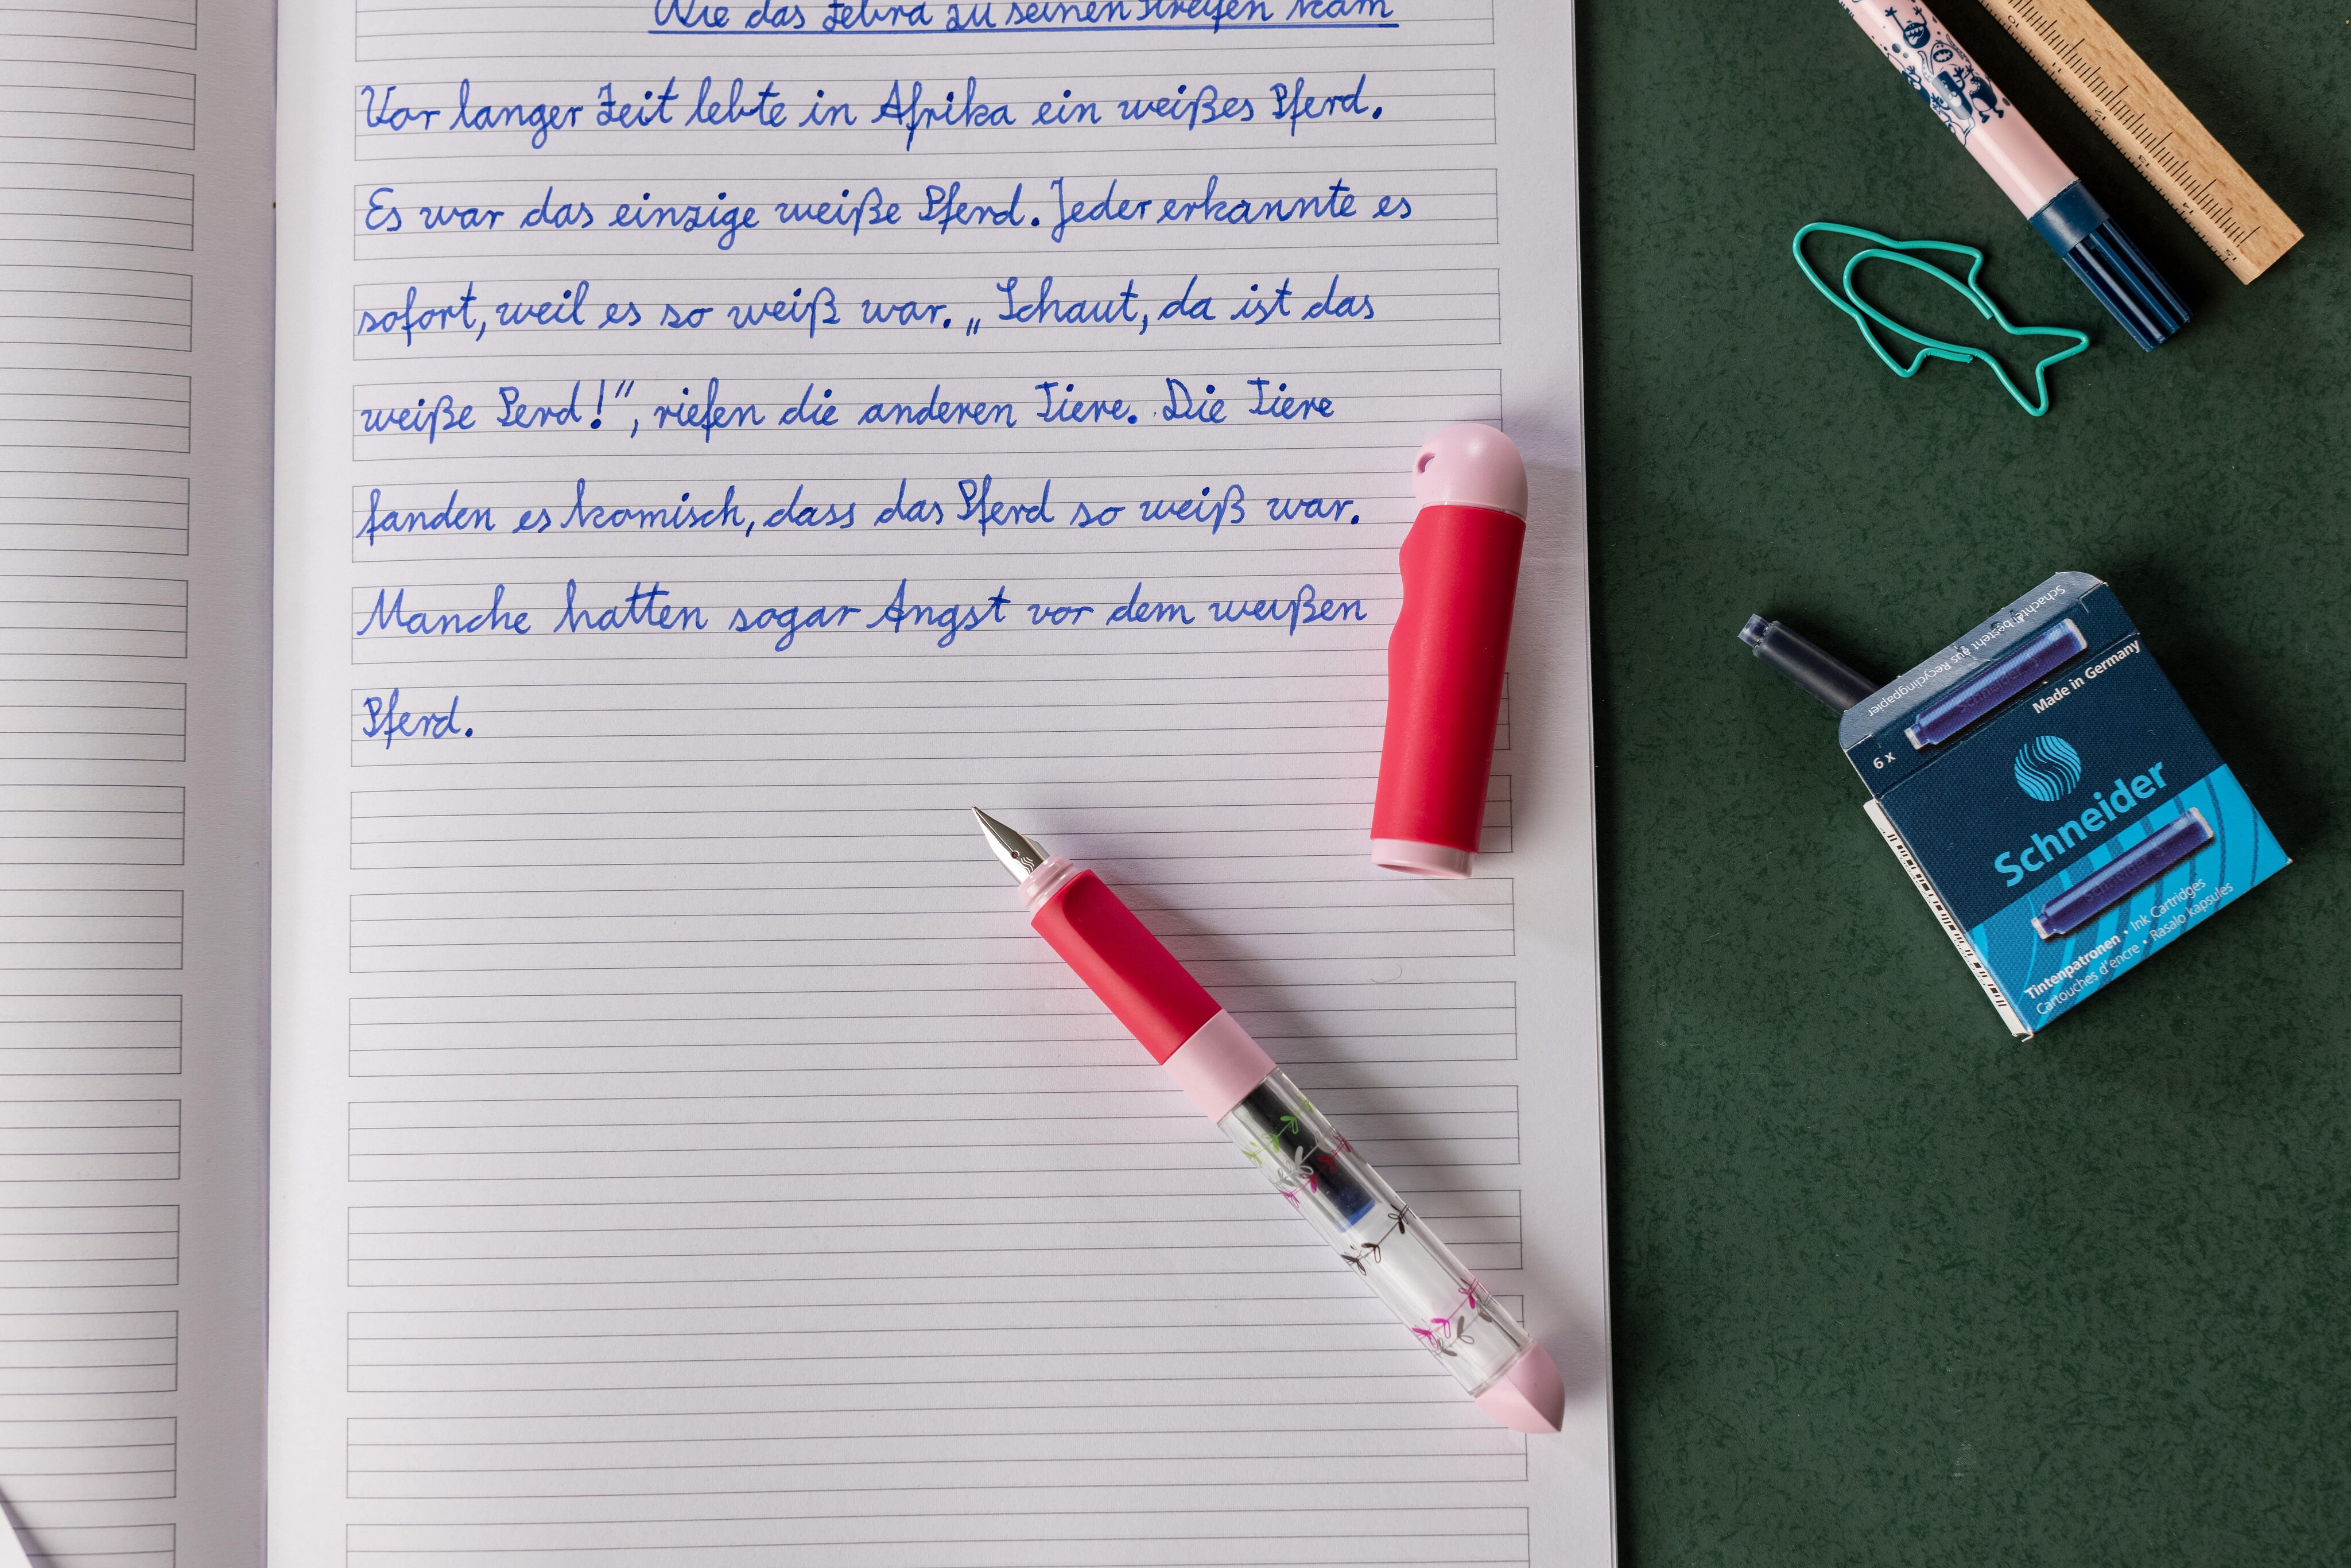 Wie das Zebra zu seinen Streifen kam
Vor langer Zeit lebte in Afrika ein weißes Pferd.
Es war das einzige weiße Pferd. Jeder erkannte es
sofort, weil es so weiß war. „Schaut, da ist das
weiße Perd!“, riefen die anderen Tiere. Die Tiere
fanden es komisch, dass das Pferd so weiß war.
Manche hatten sogar Angst vor dem weißen
Pferd.
Schachtel besteht aus Recyclingpapier
6 x
Made in Germany
Schneider
Tintenpatronen • Ink Cartridges
Cartouches d'encre • Rasalo kapsulės